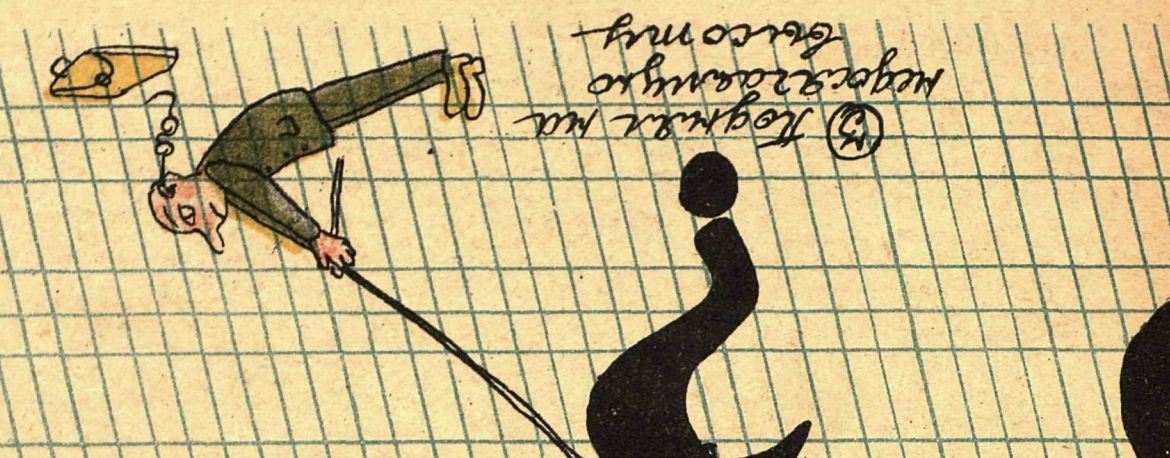 ③ Поднял на
недосягаемую
высоту